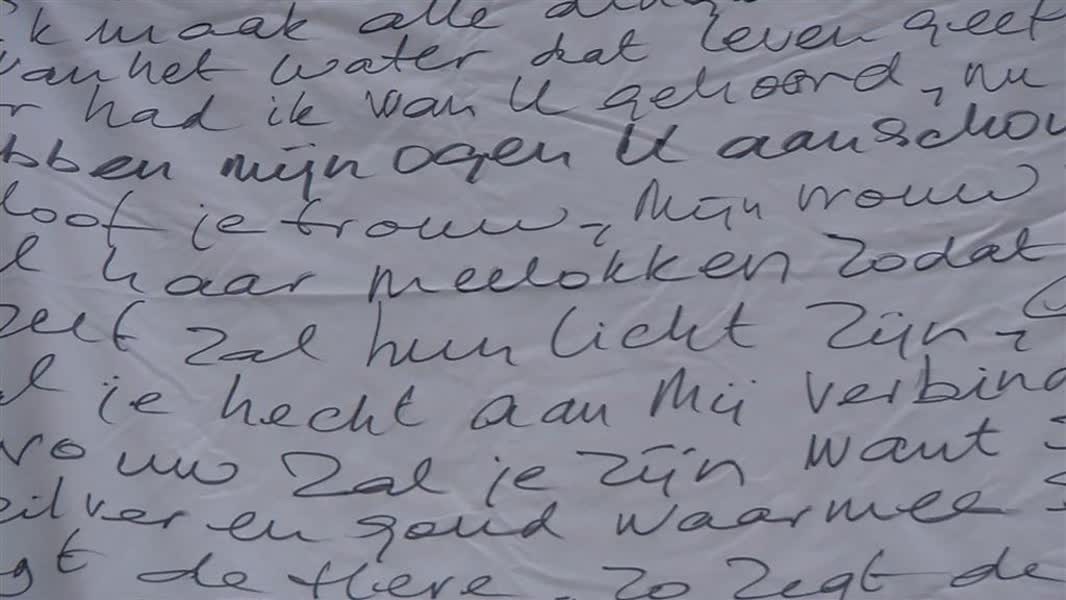 k maak alle
van het water dat leven geef
r had ik van U gehoord, nu
bben mijn ogen U aanschou
loof je trouw, Mijn vrouw
l haar meelokken zodat
zelf zal hun licht zijn,
l je hecht aan Mij verbind
vrouw zal je zijn want
zilver en goud waarmee
gt de Here. Zo zegt de